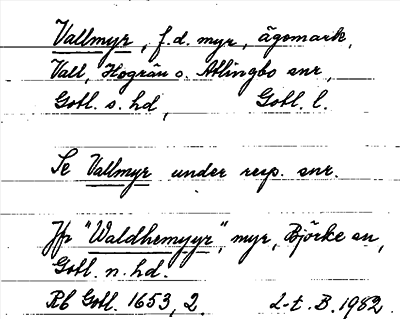 Vallmyr, f.d. myr, ägomark,
Vall, Hogrän o. Atlingbo snr,
Gotl. s. hd, Gotl. l.
Se Vallmyr under resp. snr.
Jfr "Waldhemyyr", myr, Björke sn,
Gotl. n. hd.
Rb Gotl. 1653, 2. L-t. B. 1982